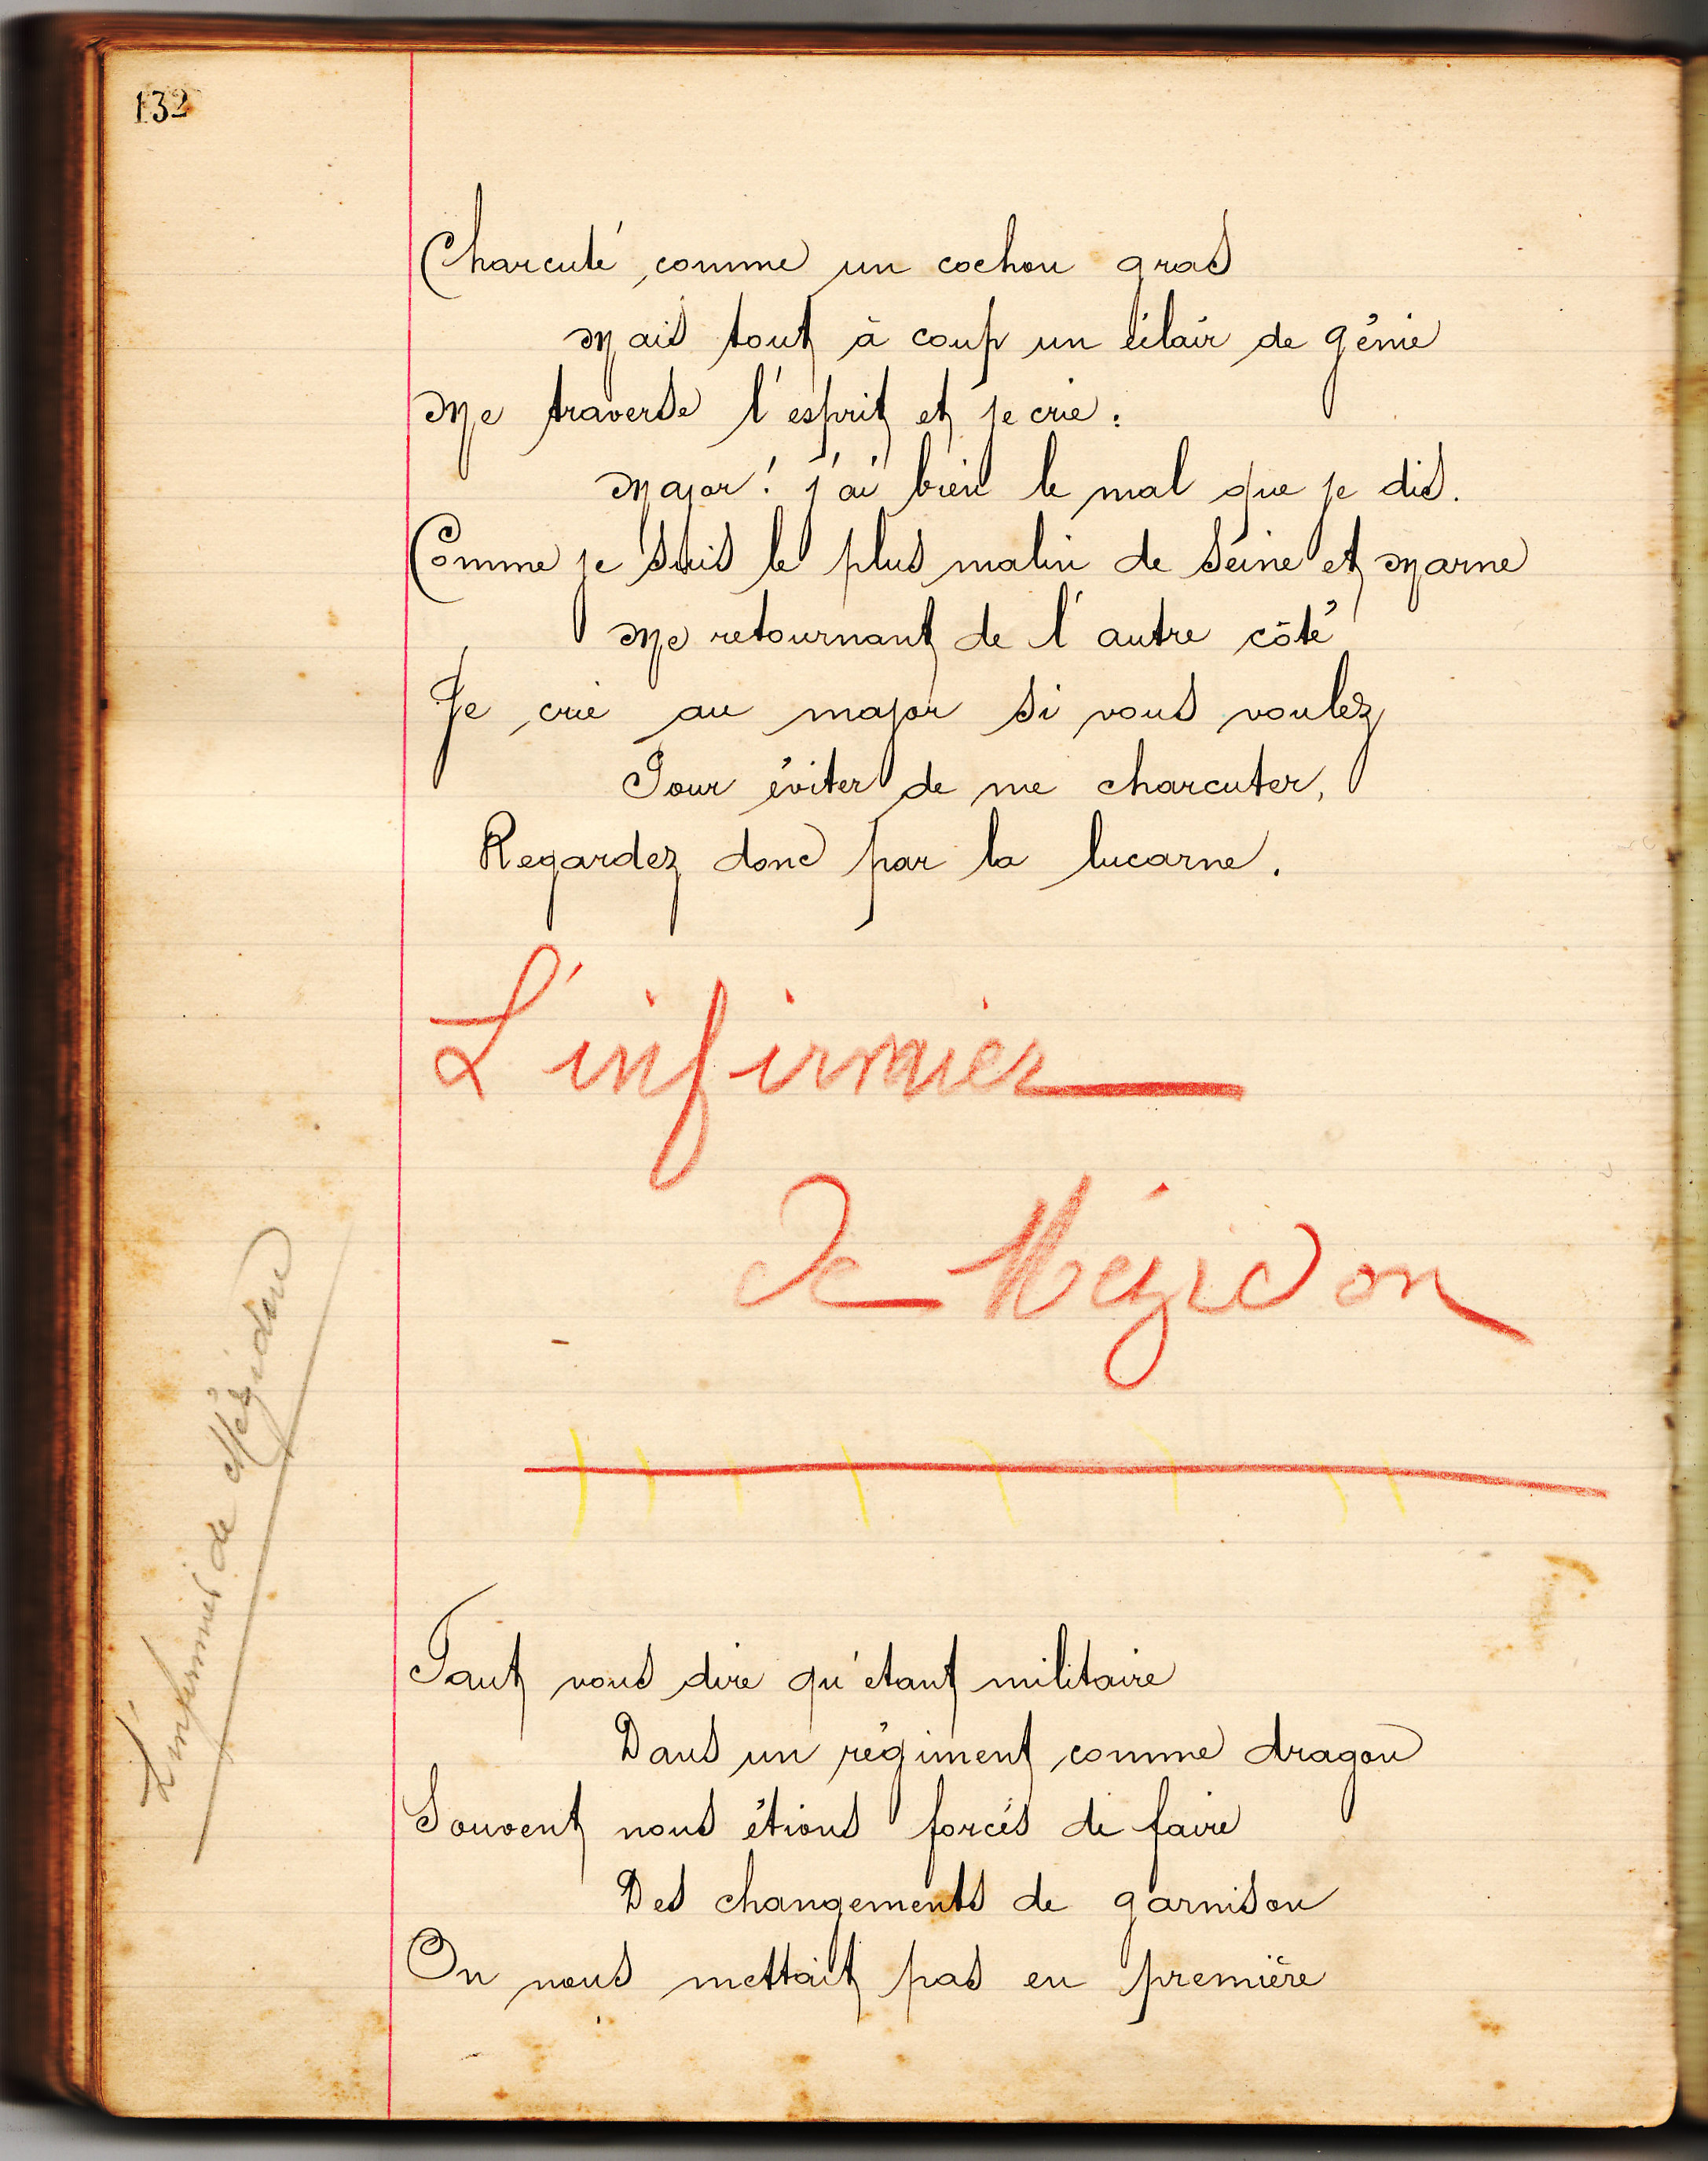 132
Charcuté comme un cochon gras
Mais tout à coup un éclair de génie
Me traverse l'esprit et je crie :
Major ! j'ai bien le mal que je dis.
Comme je suis le plus malin de Seine et Marne
Me retournant de l'autre côté
Je crie au major si vous voulez
Pour éviter de me charcuter,
Regardez donc par la lucarne.
L'infirmier
de Mézidon
L'infirmier de Mézidon
Faut vous dire qu'étant militaire
Dans un régiment comme dragon
Souvent nous étions forcés de faire
Des changements de garnison
On nous mettait pas en première